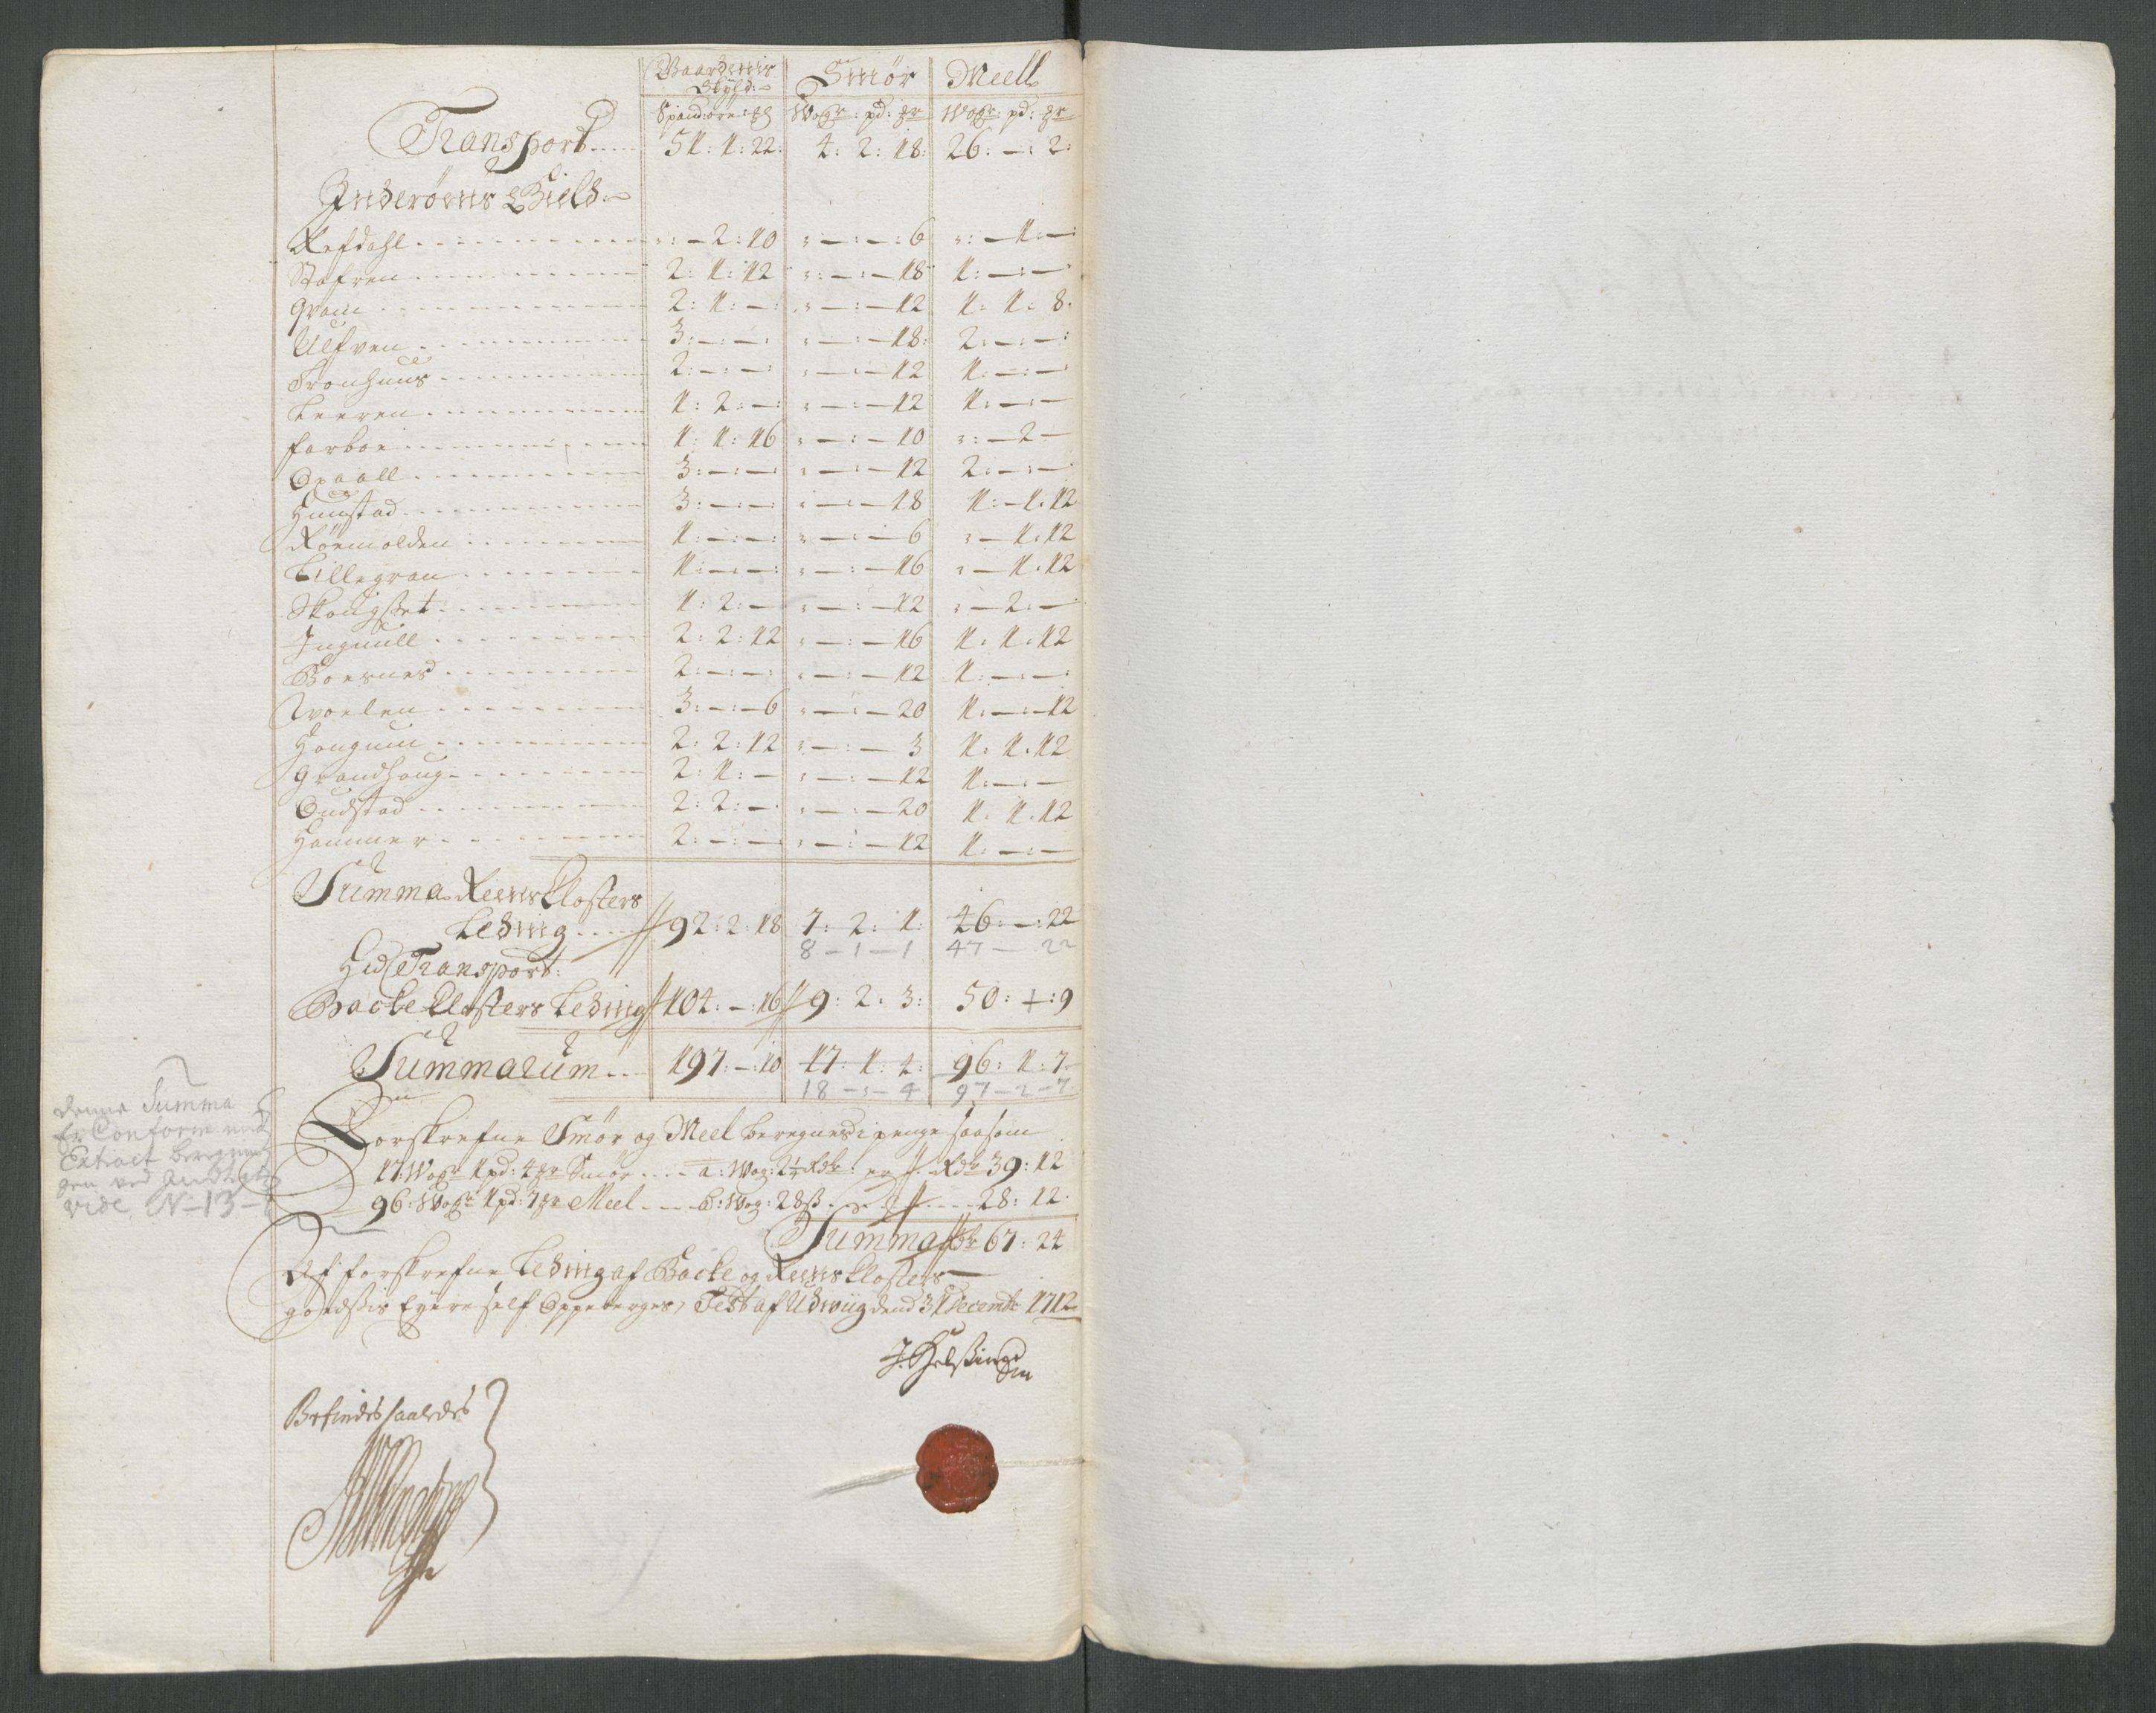 Gaardenis Skyld:	Smør	Meell
Spand: øre: ℔	Wog: pd: ℔	Wog: pd: ℔
Transport	51: 1: 22:	4: 2: 18:	26: —: 2:
Inderøens Gield:
Refdahl	: — 2: 10	: — : — : 6	: — 1: —
Stafren	2: 1: 12	: — : — 18	1: — : —
Qvam	2: 1: —	: — : — 12	1: 1: 8.
Ulfven	3: — : —	: — : — 18:	2: — : —
Tronhuus	2: — : —	: — : — 12	1: — : —
Leeren	1: 2: —	: — : — 12	1: — : —
farboe	1: 1: 16	: — : — 10	: — 2 —
Opaall	3: — : —	: — : — 12	2: — : —
Hunstad	3: — : —	: — : — 18	1: — 1: 12
Røemolden	1: — : —	: — : — 6	: — 1: 12
Lillegran	1: — : —	: — : — 16	: — 1: 12
Skougset	1: 2: —	: — : — 12	: — 2: —
Ingnull	2: 2: 12	: — : — 16	1: 1: 12
Boesnes	2: — : —	: — : — 12	1: — : —
Qvoelen	3: — : 6	: — : — 20	1: — : — 12
Hougum	2: 2: 12	: — : — 3	1: 1: 12
Grandhoug	2: 1: —	: — : — 12	1: — : —
Oudstad	2: 2: —	: — : — 20	1: 1: 12
Hammer	2: — : —	: — : — 12	1: — : —
Summa Reens Closters
Leding	92: 2: 18	7: 2: 1:	46: — : 22
8 — 1 — 1	47 — 22
Hid Transport:
Backe Closters Leding	104: — : 16	9: 2: 3:	50: 1: 9
Summarum	197: — : 10	17: 1: 4:	96: 1: 7
18 — : — 4	97 — 2 — 7
denne Summa
Er Conform med
Extract beregnin
gen ved
vide N— 13 —
Forskrefne Smør og Meel beregnes i penge saasom
17: Wog 1 pd: 4 ℔ Smør a: Wog: 2¼ Rdr: er Rdr 39: 12
96: Wog 1 pd: 7 ℔ Meel a: Wog: 28 ß 28: 12.
Summa Rdr 67: 24
Af forskrefne Leding af Backe og Reens Closters
godtsis Eyere self Oppeberges, Test af Udwiig dend 31 Decembr 1712
J: Helssing
Befindes saaledes